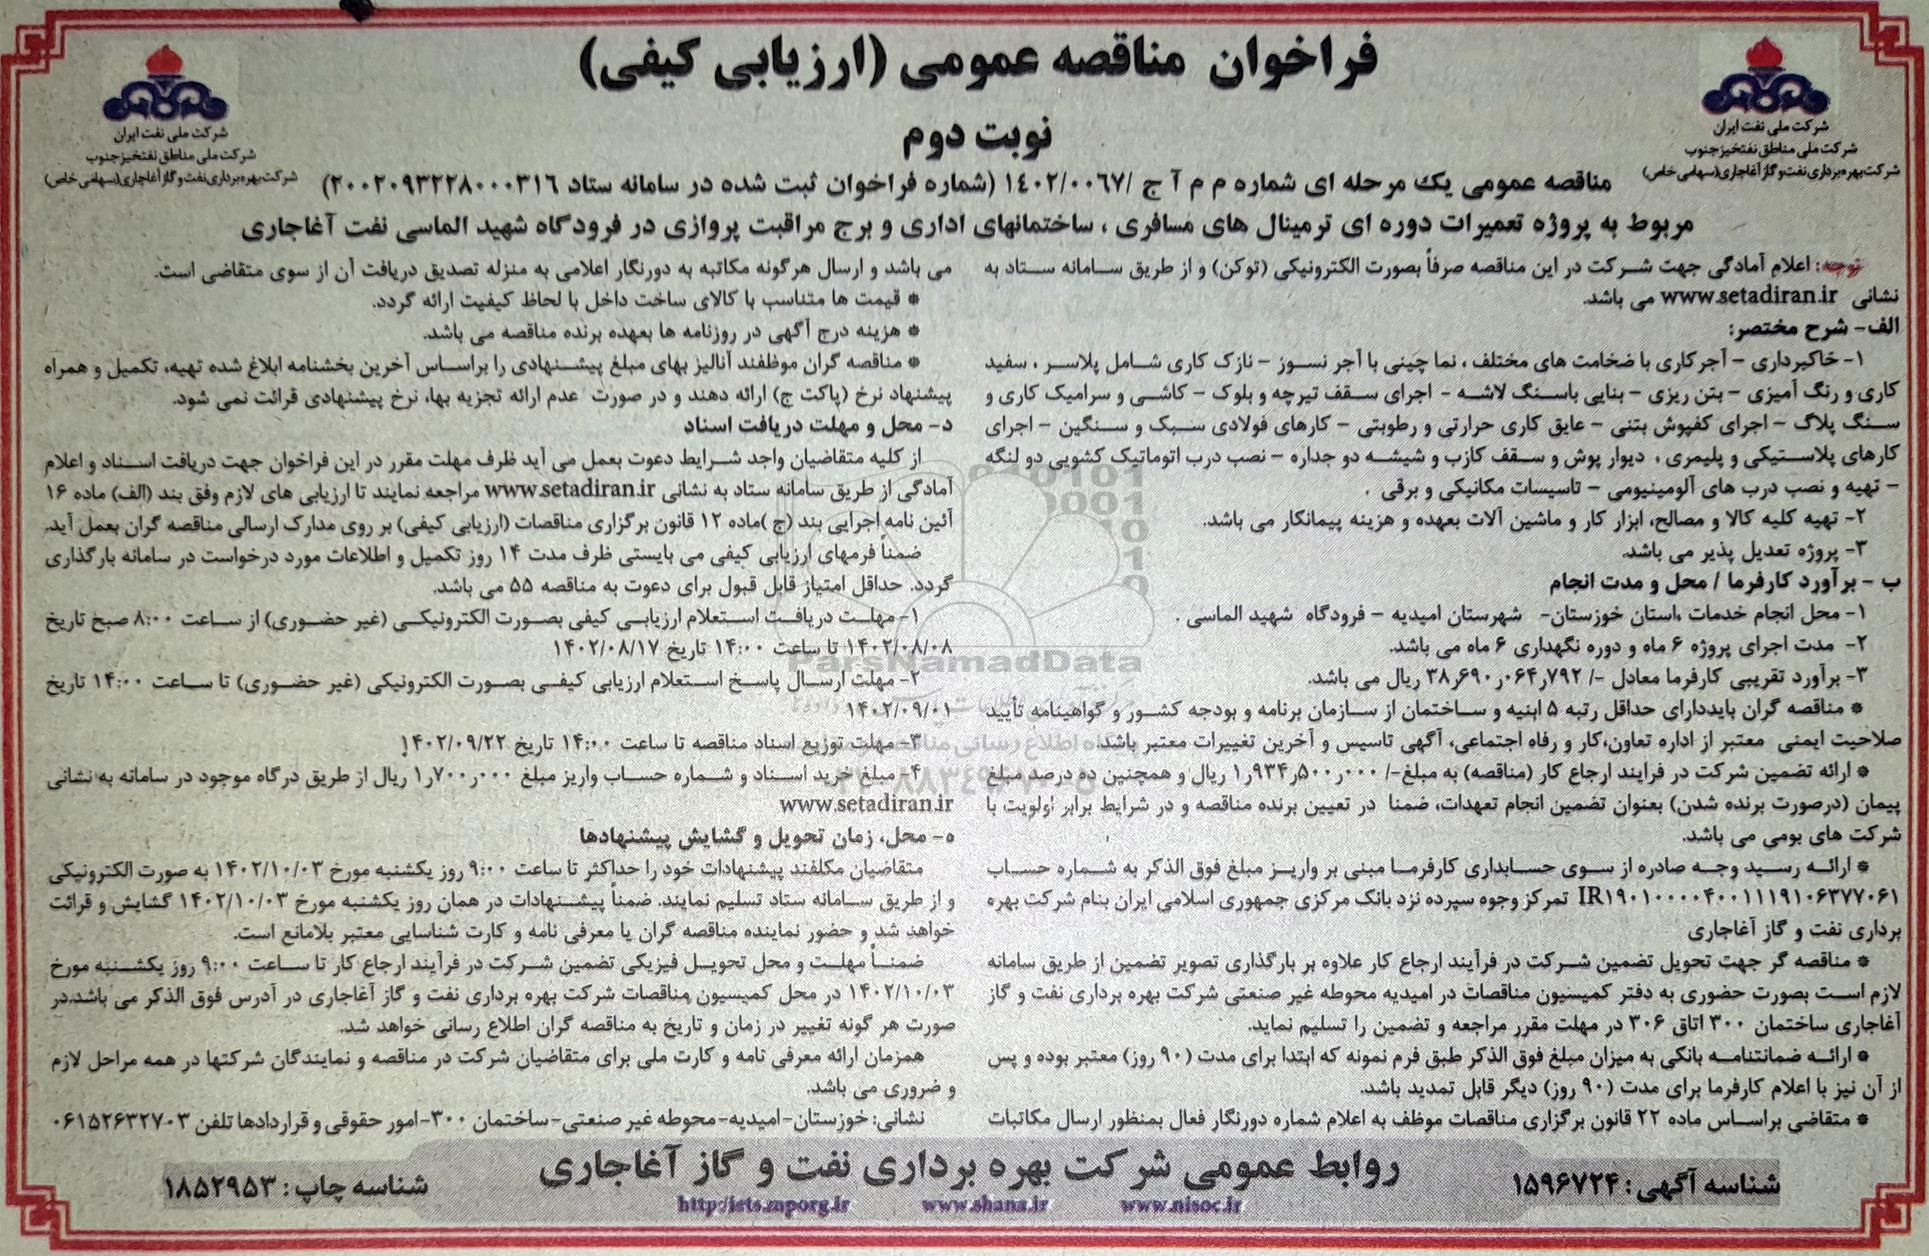 فراخوان مناقصه عمومی (ارزیابی کیفی)
نوبت دوم
شرکت ملی نفت ایران
شرکت ملی مناطق نفتخیز جنوب
شرکت بهره برداری نفت و گاز آغاجاری (سهامی خاص)
شرکت ملی نفت ایران
شرکت ملی مناطق نفتخیز جنوب
شرکت بهره برداری نفت و گاز آغاجاری (سهامی خاص)
مناقصه عمومی یک مرحله ای شماره م م آ ج /۱۴۰۲/۰۰۶۷ (شماره فراخوان ثبت شده در سامانه ستاد ۲۰۰۲۰۹۳۲۲۸۰۰۰۳۱۶)
مربوط به پروژه تعمیرات دوره ای ترمینال های مسافری ، ساختمانهای اداری و برج مراقبت پروازی در فرودگاه شهید الماسی نفت آغاجاری
توجه: اعلام آمادگی جهت شرکت در این مناقصه صرفاً بصورت الکترونیکی (توکن) و از طریق سامانه ستاد به
نشانی www.setadiran.ir می باشد.
الف- شرح مختصر:
۱- خاکبرداری – آجرکاری با ضخامت های مختلف ، نما چینی با آجر نسوز – نازک کاری شامل پلاستر ، سفید
کاری و رنگ آمیزی – بتن ریزی – بنایی باسنگ لاشه - اجرای سقف تیرچه و بلوک – کاشی و سرامیک کاری و
سنگ پلاگ – اجرای کفپوش بتنی – عایق کاری حرارتی و رطوبتی – کارهای فولادی سبک و سنگین – اجرای
کارهای پلاستیکی و پلیمری ، دیوار پوش و سقف کاذب و شیشه دو جداره – نصب درب اتوماتیک کشویی دو لنگه
– تهیه و نصب درب های آلومینیومی – تاسیسات مکانیکی و برقی .
۲- تهیه کلیه کالا و مصالح، ابزار کار و ماشین آلات بعهده و هزینه پیمانکار می باشد.
۳- پروژه تعدیل پذیر می باشد.
ب – برآورد کارفرما / محل و مدت انجام
۱- محل انجام خدمات ،استان خوزستان- شهرستان امیدیه – فرودگاه شهید الماسی .
۲- مدت اجرای پروژه ۶ ماه و دوره نگهداری ۶ ماه می باشد.
۳- برآورد تقریبی کارفرما معادل -/ ۳۸٫۶۹۰٫۰۶۴٫۷۹۲ ریال می باشد.
* مناقصه گران بایددارای حداقل رتبه ۵ ابنیه و ساختمان از سازمان برنامه و بودجه کشور و گواهینامه تأیید
صلاحیت ایمنی معتبر از اداره تعاون،کار و رفاه اجتماعی، آگهی تاسیس و آخرین تغییرات معتبر باشد.
* ارائه تضمین شرکت در فرایند ارجاع کار (مناقصه) به مبلغ-/ ۱٫۹۳۴٫۵۰۰٫۰۰۰ ریال و همچنین ده درصد مبلغ
پیمان (درصورت برنده شدن) بعنوان تضمین انجام تعهدات، ضمنا در تعیین برنده مناقصه و در شرایط برابر اولویت با
شرکت های بومی می باشد.
* ارائه رسید وجه صادره از سوی حسابداری کارفرما مبنی بر واریز مبلغ فوق الذکر به شماره حساب
IR۱۹۰۱۰۰۰۰۴۰۰۱۱۱۹۱۰۶۳۷۷۰۶۱ تمرکز وجوه سپرده نزد بانک مرکزی جمهوری اسلامی ایران بنام شرکت بهره
برداری نفت و گاز آغاجاری
* مناقصه گر جهت تحویل تضمین شرکت در فرآیند ارجاع کار علاوه بر بارگذاری تصویر تضمین از طریق سامانه
لازم است بصورت حضوری به دفتر کمیسیون مناقصات در امیدیه محوطه غیر صنعتی شرکت بهره برداری نفت و گاز
آغاجاری ساختمان ۳۰۰ اتاق ۳۰۶ در مهلت مقرر مراجعه و تضمین را تسلیم نماید.
* ارائه ضمانتنامه بانکی به میزان مبلغ فوق الذکر طبق فرم نمونه که ابتدا برای مدت (۹۰ روز) معتبر بوده و پس
از آن نیز با اعلام کارفرما برای مدت (۹۰ روز) دیگر قابل تمدید باشد.
* متقاضی براساس ماده ۲۲ قانون برگزاری مناقصات موظف به اعلام شماره دورنگار فعال بمنظور ارسال مکاتبات
می باشد و ارسال هرگونه مکاتبه به دورنگار اعلامی به منزله تصدیق دریافت آن از سوی متقاضی است.
* قیمت ها متناسب با کالای ساخت داخل با لحاظ کیفیت ارائه گردد.
* هزینه درج آگهی در روزنامه ها بعهده برنده مناقصه می باشد.
* مناقصه گران موظفند آنالیز بهای مبلغ پیشنهادی را براساس آخرین بخشنامه ابلاغ شده تهیه، تکمیل و همراه
پیشنهاد نرخ (پاکت ج) ارائه دهند و در صورت عدم ارائه تجزیه بها، نرخ پیشنهادی قرائت نمی شود.
د- محل و مهلت دریافت اسناد
از کلیه متقاضیان واجد شرایط دعوت بعمل می آید ظرف مهلت مقرر در این فراخوان جهت دریافت اسناد و اعلام
آمادگی از طریق سامانه ستاد به نشانی www.setadiran.ir مراجعه نمایند تا ارزیابی های لازم وفق بند (الف) ماده ۱۶
آئین نامه اجرایی بند (ج )ماده ۱۲ قانون برگزاری مناقصات (ارزیابی کیفی) بر روی مدارک ارسالی مناقصه گران بعمل آید.
ضمناً فرمهای ارزیابی کیفی می بایستی ظرف مدت ۱۴ روز تکمیل و اطلاعات مورد درخواست در سامانه بارگذاری
گردد. حداقل امتیاز قابل قبول برای دعوت به مناقصه ۵۵ می باشد.
۱- مهلت دریافت استعلام ارزیابی کیفی بصورت الکترونیکی (غیر حضوری) از ساعت ۸:۰۰ صبح تاریخ
۱۴۰۲/۰۸/۰۸ تا ساعت ۱۴:۰۰ تاریخ ۱۴۰۲/۰۸/۱۷
۲- مهلت ارسال پاسخ استعلام ارزیابی کیفی بصورت الکترونیکی (غیر حضوری) تا ساعت ۱۴:۰۰ تاریخ
۱۴۰۲/۰۹/۰۱
۳- مهلت توزیع اسناد مناقصه تا ساعت ۱۴:۰۰ تاریخ ۱۴۰۲/۰۹/۲۲
۴- مبلغ خرید اسناد و شماره حساب واریز مبلغ ۱٫۷۰۰٫۰۰۰ ریال از طریق درگاه موجود در سامانه به نشانی
www.setadiran.ir
ه- محل، زمان تحویل و گشایش پیشنهادها
متقاضیان مکلفند پیشنهادات خود را حداکثر تا ساعت ۹:۰۰ روز یکشنبه مورخ ۱۴۰۲/۱۰/۰۳ به صورت الکترونیکی
و از طریق سامانه ستاد تسلیم نمایند. ضمناً پیشنهادات در همان روز یکشنبه مورخ ۱۴۰۲/۱۰/۰۳ گشایش و قرائت
خواهد شد و حضور نماینده مناقصه گران با معرفی نامه و کارت شناسایی معتبر بلامانع است.
ضمناً مهلت و محل تحویل فیزیکی تضمین شرکت در فرآیند ارجاع کار تا ساعت ۹:۰۰ روز یکشنبه مورخ
۱۴۰۲/۱۰/۰۳ در محل کمیسیون مناقصات شرکت بهره برداری نفت و گاز آغاجاری در آدرس فوق الذکر می باشد.در
صورت هر گونه تغییر در زمان و تاریخ به مناقصه گران اطلاع رسانی خواهد شد.
همزمان ارائه معرفی نامه و کارت ملی برای متقاضیان شرکت در مناقصه و نمایندگان شرکتها در همه مراحل لازم
و ضروری می باشد.
نشانی: خوزستان-امیدیه-محوطه غیر صنعتی-ساختمان ۳۰۰-امور حقوقی و قراردادها تلفن ۰۶۱۵۲۶۳۲۷۰۳
ParsNamadData
شناسه آگهی : ۱۵۹۶۷۲۴
روابط عمومی شرکت بهره برداری نفت و گاز آغاجاری
شناسه چاپ : ۱۸۵۲۹۵۳
http://iets.mporg.ir www.shana.ir www.nisoc.ir